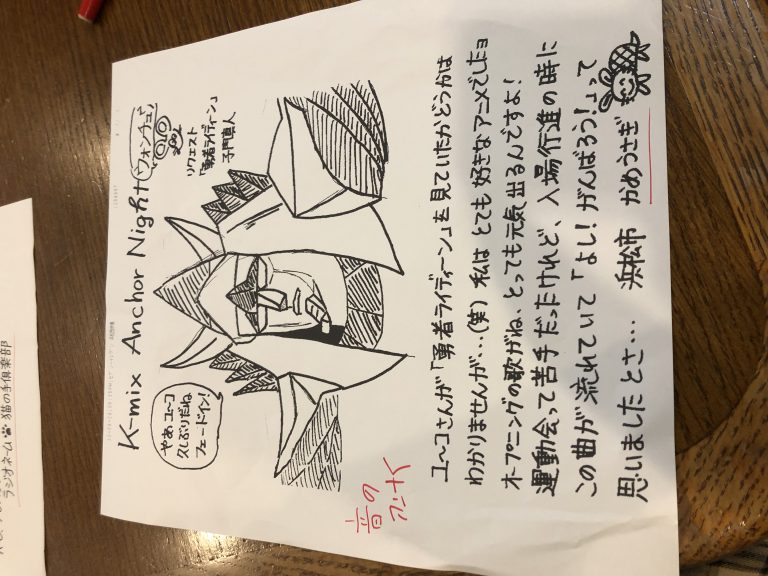 K-mix Anchor Night ウォンチュ♪
リクエスト
「勇者ライディーン」
子門真人
やあユーコ
久しぶりだね
フェードイン!
音の
ユーコさんが「勇者ライディーン」を見ていたかどうかは
わかりませんが…(笑) 私は とても 好きなアニメでしたョ
オープニングの歌がね、とっても元気出るんですよ!
運動会って苦手だったけれど、入場行進の時に
この曲が 流れていて「よし! がんばろう!」って
思いましたとさ… 浜松市 かめうさぎ
ラジオネーム 猫の手倶楽部